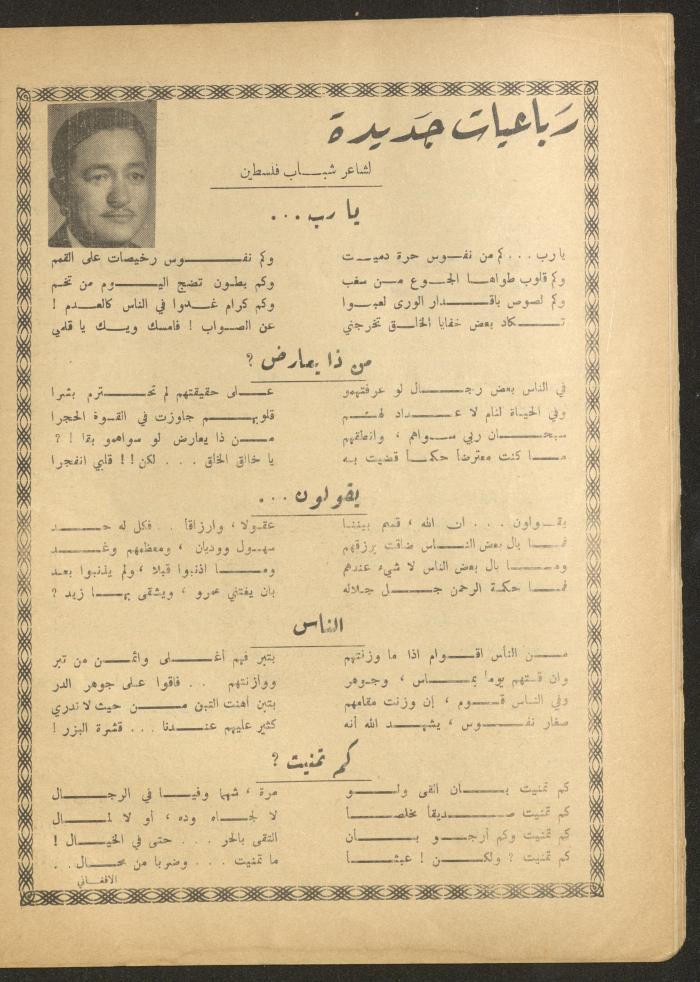 رباعيات جديدة
لشاعر شباب فلسطين
يا رب ...
يا رب ... كم من نفوس حرة دميت وكم نفوس رخيصات على القمم
وكم قلوب طواها الجوع من سغب وكم بطون تضج اليوم من تخم
وكم لصوص باقدار الورى لعبوا وكم كرام غدوا في الناس كالعدم !
تكاد بعض خفايا الخلق تخرجني عن الصواب ! فامسك ويك يا قلمي
من ذا يعارض ؟
في الناس بعض رجال لو عرفتهمو على حقيقتهم لم تحترم بشرا
وفي الحياة لئام لا عداد لهم قلوبهم جاوزت في القسوة الحجرا
سبحان ربي سواهم ، وانطقهم من ذا يعارض لو سواهمو بقرا ! ؟
ما كنت معترضا حكما قضيت به يا خالق الخلق ... لكن !! قلبي انفجرا
يقولون ...
يقولون ... ان الله ، قسم بيننا عقولا ، وارزاقا .. فكل له حد
فما بال بعض الناس ضاقت برزقهم سهول ووديان ، ومعظمهم وغد
وما بال بعض الناس لا شيء عندهم وما اذنبوا قبلا ، ولم يذنبوا بعد
فما حكمة الرحمن جل جلاله بان يغتني عمرو ، ويشقى بها زيد ؟
الناس
من الناس اقوام اذا ما وزنتهم بتبر فهم أغلى واثمن من تبر
وان قستهم يوما بماس ، وجوهر ووازنتهم .. فاقوا على جوهر الدر
وفي الناس قوم ، إن وزنت مقامهم بتبن أهنت التبن من حيث لا ندري
صغار نفوس ، يشهد الله أنه كثير عليهم عندنا ... قشرة البزر !
كم تمنيت ؟
كم تمنيت بان القى ولو مرة ، شهما وفيا في الرجال
كم تمنيت صديقا مخلصا لا لجاه وده ، أو لا لمال
كم تمنيت وكم أرجو بان التقى بالحر ... حتى في الخيال !
كم تمنيت ؟ ولكن ! عبثا ما تمنيت ... وضربا من محال ..
الافغاني